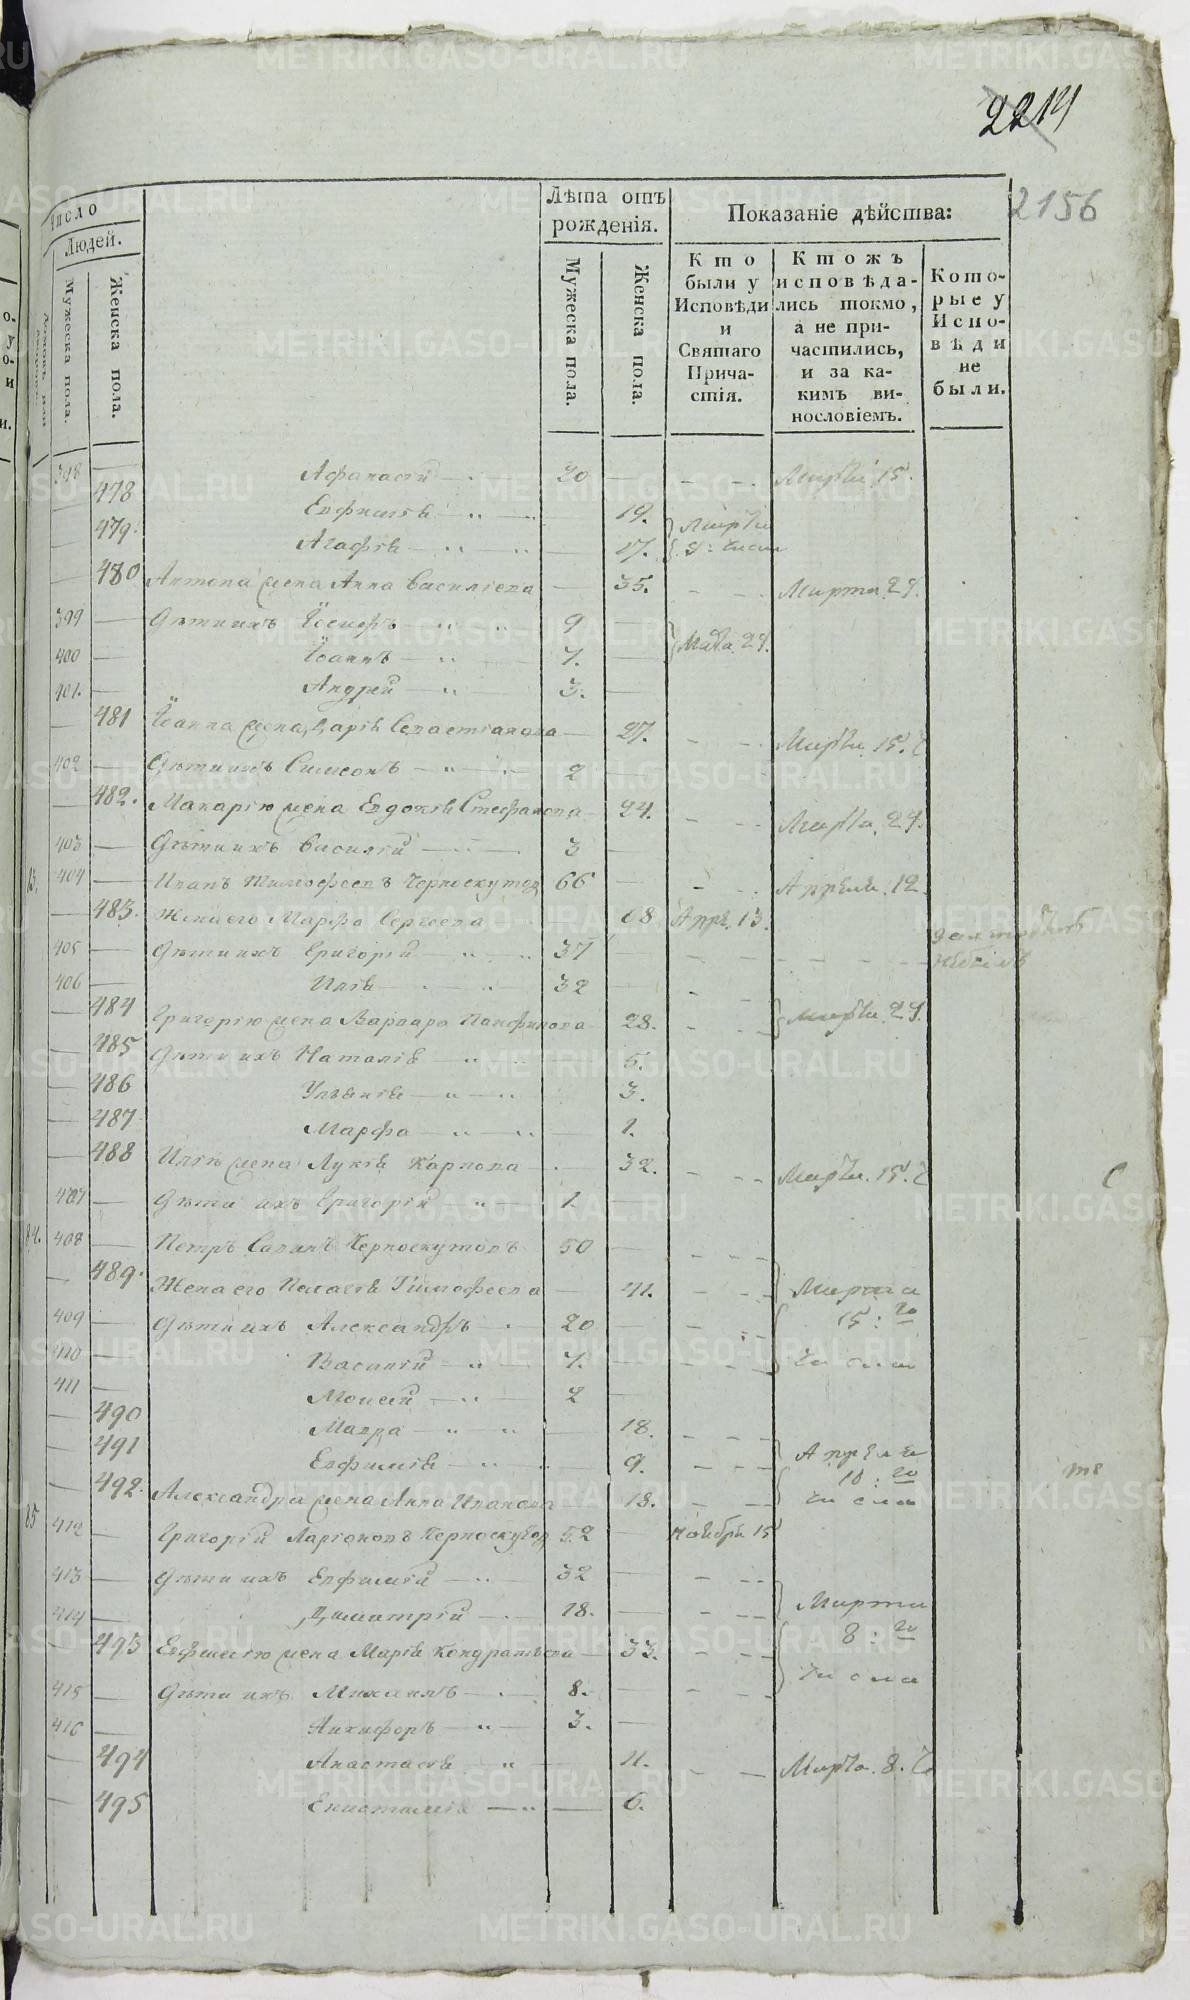 2214
2156
Число
Людей.
Мужеска пола.
Женска пола.
Лѣта отъ рожденія.
Мужеска пола.
Женска пола.
Показаніе дѣйства:
Кто были у Исповѣди и Святаго Причастія.
Ктожъ исповѣдались токмо, а не причастились, и за какимъ винословіемъ.
Которые у Исповѣди не были.
398 Афанасій 20 Марта 15.
478 Евфимія 19. Марта
479. Агафія 17. числа
480 Антона жена Анна Василіева 35. Марта
399 Дѣти ихъ Іосифъ 9
400 Іоаннъ 7.
401. Андрей 3.
481 Іоанна жена Дарія Севастіанова 27. Марта 15.
402 Дѣти ихъ Симеонъ 2
482. Макарію жена Евдокія Стефанова 24. Марта
403 Дѣти ихъ Василій 3
404 Иванъ Тимофеевъ Черноскутов 66 Апреля 12.
483. Жена его Марфа Сергеева 68 Апре. 13.
405 Дѣти ихъ Григорій 37
406 Илія 32
484 Григорію жена Варвара Панфилова 28. Марта
485 Дѣти ихъ Наталія 5.
486 Ульянія 3.
487 Марфа 1.
488 Иліи жена Лукія Карпова 32. Марта 15.
407 Дѣти ихъ Григорій 1.
84. 408 Петръ Савинъ Черноскутовъ 50
489. Жена его Пелагія Тимофеева 41. Марта
409 Дѣти ихъ Александръ 20 15: го
410 Василій 7. числа
411 Моисей 2
490 Мавра 18.
491 Евфимія 9. Апреля 10: го
492. Александра жена Анна Иванова 18. числа
85 412 Григорій Ларіоновъ Черноскутов 52 Ноября 15
413 Дѣти ихъ Евфимій 32
414 Димитрій 18. Марта
493 Евфимію жена Марія Кондратьева 33. 8: го
415 Дѣти ихъ Михаилъ 8. числа
416 Никифоръ 3.
494 Анастасія 11. Марта. 8. ч
495 6.